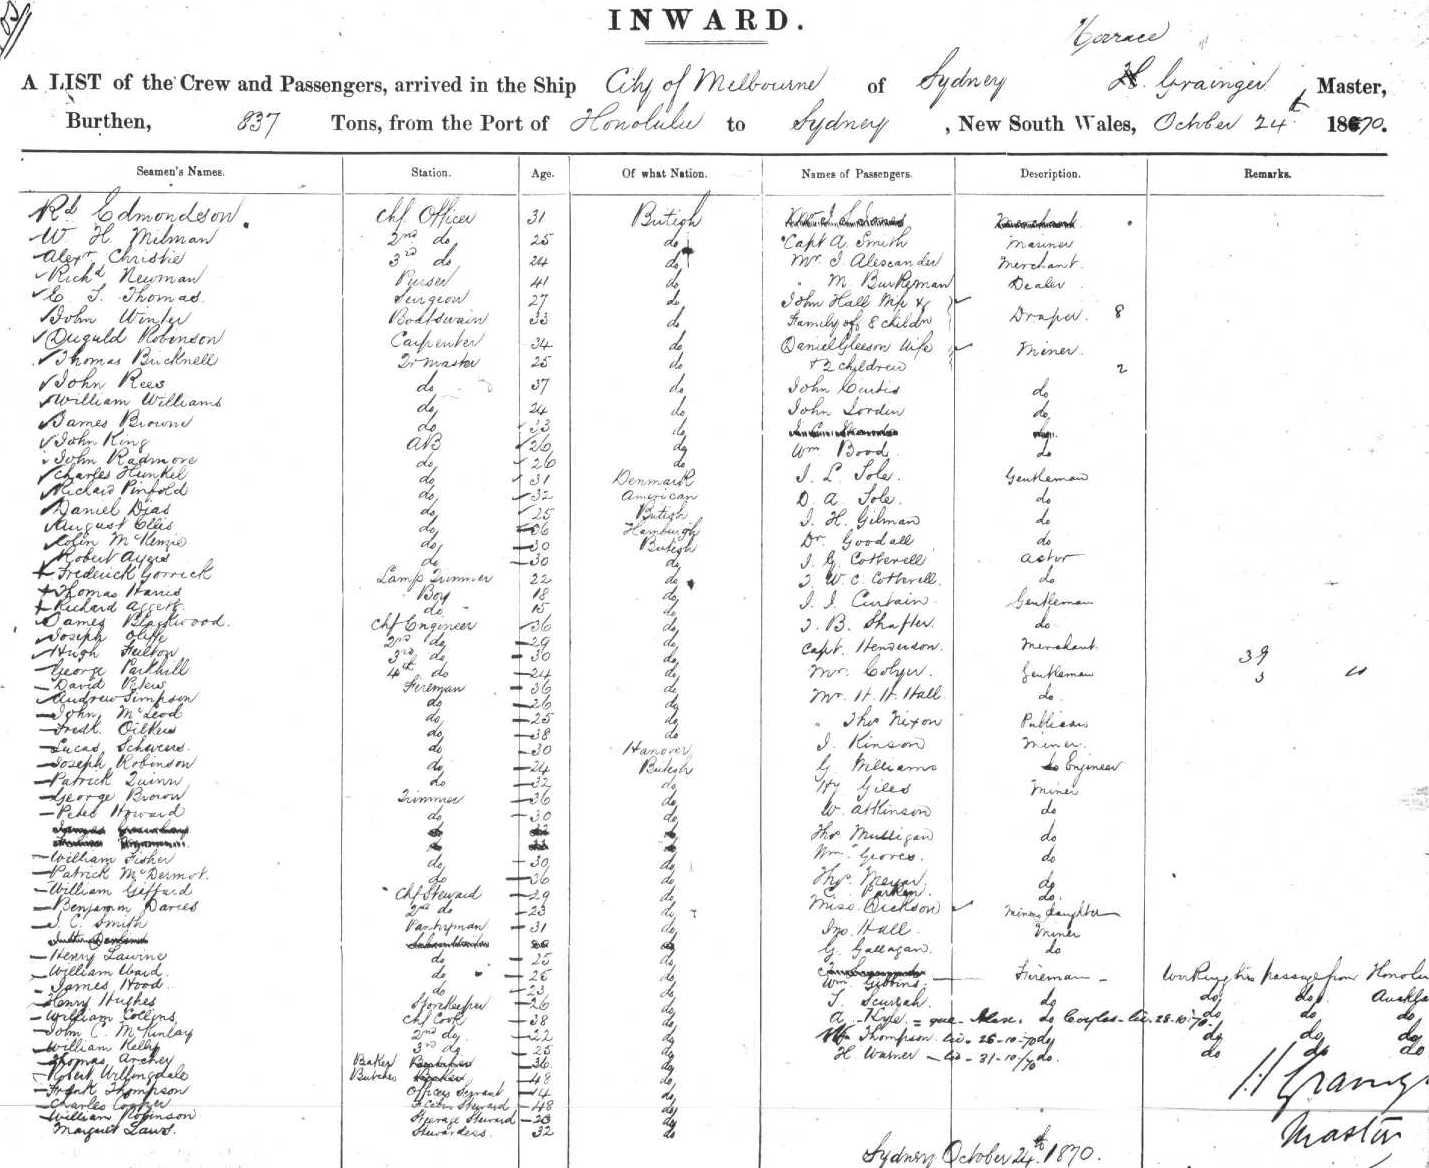 INWARD.
Horace
A LIST of the Crew and Passengers, arrived in the Ship City of Melbourne of Sydney H. Grainger Master,
Burthen, 837 Tons, from the Port of Honolulu to Sydney, New South Wales, October 24th 1870.
Seamen's Names. Station. Age. Of what Nation. Names of Passengers. Description. Remarks.
Rd Edmondson. Chf Officer 31 British
W. H. Milman 2nd do 25 do Capt A. Smith Mariner
Alexr Christie 3rd do 24 do Mr J Alexander Merchant
Richd Newman Purser 41 do " M Burkeman Dealer
E. J. Thomas Surgeon 27 do John Hall Wife &
John Winter Boatswain 33 do Family of 8 childn Draper. 8
Duguld Robinson Carpenter 34 do Daniel Gleeson Wife Miner.
Thomas Bucknell Qr Master 25 do + 2 children 2
John Rees do 37 do John Curtis do
William Williams do 24 do John Lordin do
James Browne do 33 do
John King AB 26 do Wm Bood do
John Radmore do 26 do
Charles Hunkel do 31 Denmark J. L. Sole. Gentleman
Richard Pinfold do 32 American D. A. Sole. do
Daniel Dias do 25 British J. H. Gilman do
August Ellis do 36 Hamburgh Dr. Goodall do
Colin McKenzie do 30 British
Robert Ayers do 30 do J. G. Cotherell Actor
Frederick Gorrick Lamp Trimmer 22 do J. W. C. Cotherell. do
Thomas Harris Boy 18 do
Richard Aggett do 15 do J. J. Curtain Gentleman
James Blackwood. Chf Engineer 36 do J. B. Shafter do
Joseph Oliffe 2nd do 29 do
Hugh Fulton 3rd do 30 do Capt. Henderson. Merchant 39
George Parkhill 4th do 24 do Mr. Colyer. Gentleman 3
David Plew Fireman 36 do
Andrew Simpson do 26 do Mr. H. H. Hall do
John McLeod do 25 do " Thos Nixon Publican
Fredk. Oilkers do 38 do
Lucas Schevers. do 30 Hanover J. Kinson Miner
Joseph Robinson do 24 British G Williams Engineer
Patrick Quinn do 32 do Hy Giles Miner
George Brown Trimmer 36 do
Peter Howard do 30 do W. Atkinson do
Thos Mulligan do
William Fisher do 30 do Wm. Groves. do
Patrick McDermot. do 36 do Thos. Meyar do
William Gifford Chf Steward 29 do C. Parken. do.
Benjamin Davies 2nd do 23 do Miss Dickson Miners daughter
J. C. Smith Pantryman 31 do Jno. Hall Miner
G. Gallagan. do
Henry Lawrne do 25 do
William Waid. do 26 do Wm Gibbins Fireman Working his passage from Honolu
James Hood. do 23 do
Henry Hughes Storekeeper 26 do T. Scurrah. do do do Auckla
William Collens Chf Cook 38 do A. Kyle. do 28.10.70 do do do
John C. McKinlay 2nd do 22 do Thompson 25-10-70 do do do do
William Kelly 3rd do 25 do H Warner 31-10/70 do. do do do
Thomas Archer Baker 36 do
Robert Willingdale Butcher 48 do
Frank Thompson Officers Servant 14 do
Charles Cooper Fcabin Steward 48 do
William Robinson Steerage Steward 23 do
Margaret Laws. Stewardess. 32 do
H Grainge
Master
Sydney October 24th 1870.